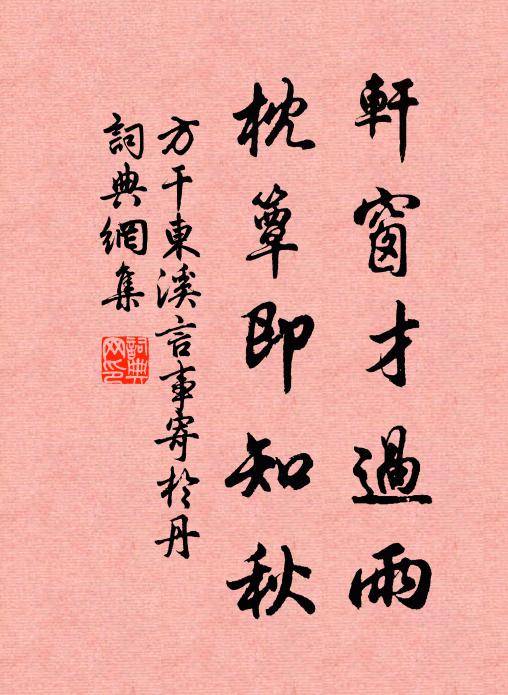 軒窗才過雨
枕簟即知秋
方干東溪言事寄於丹
詞典網集
詞典網印